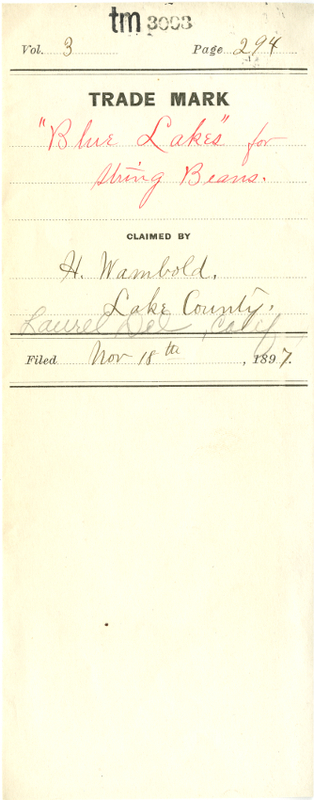 tm 3003
Vol. 3 Page 294
TRADE MARK
"Blue Lakes" for
String Beans.
CLAIMED BY
H. Wambold.
Lake County.
Laurel Del, Calif
Filed Nov 18th, 1897.